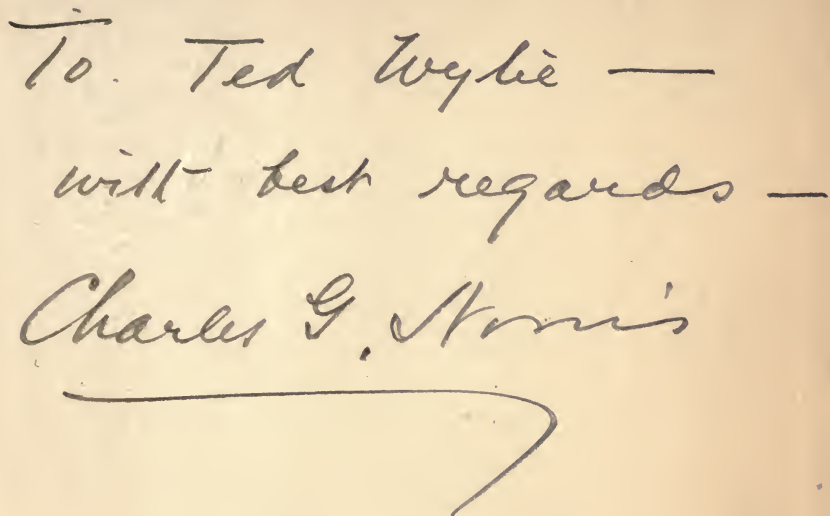 To. Ted Wylie —
with best regards —
Charles G. Norris